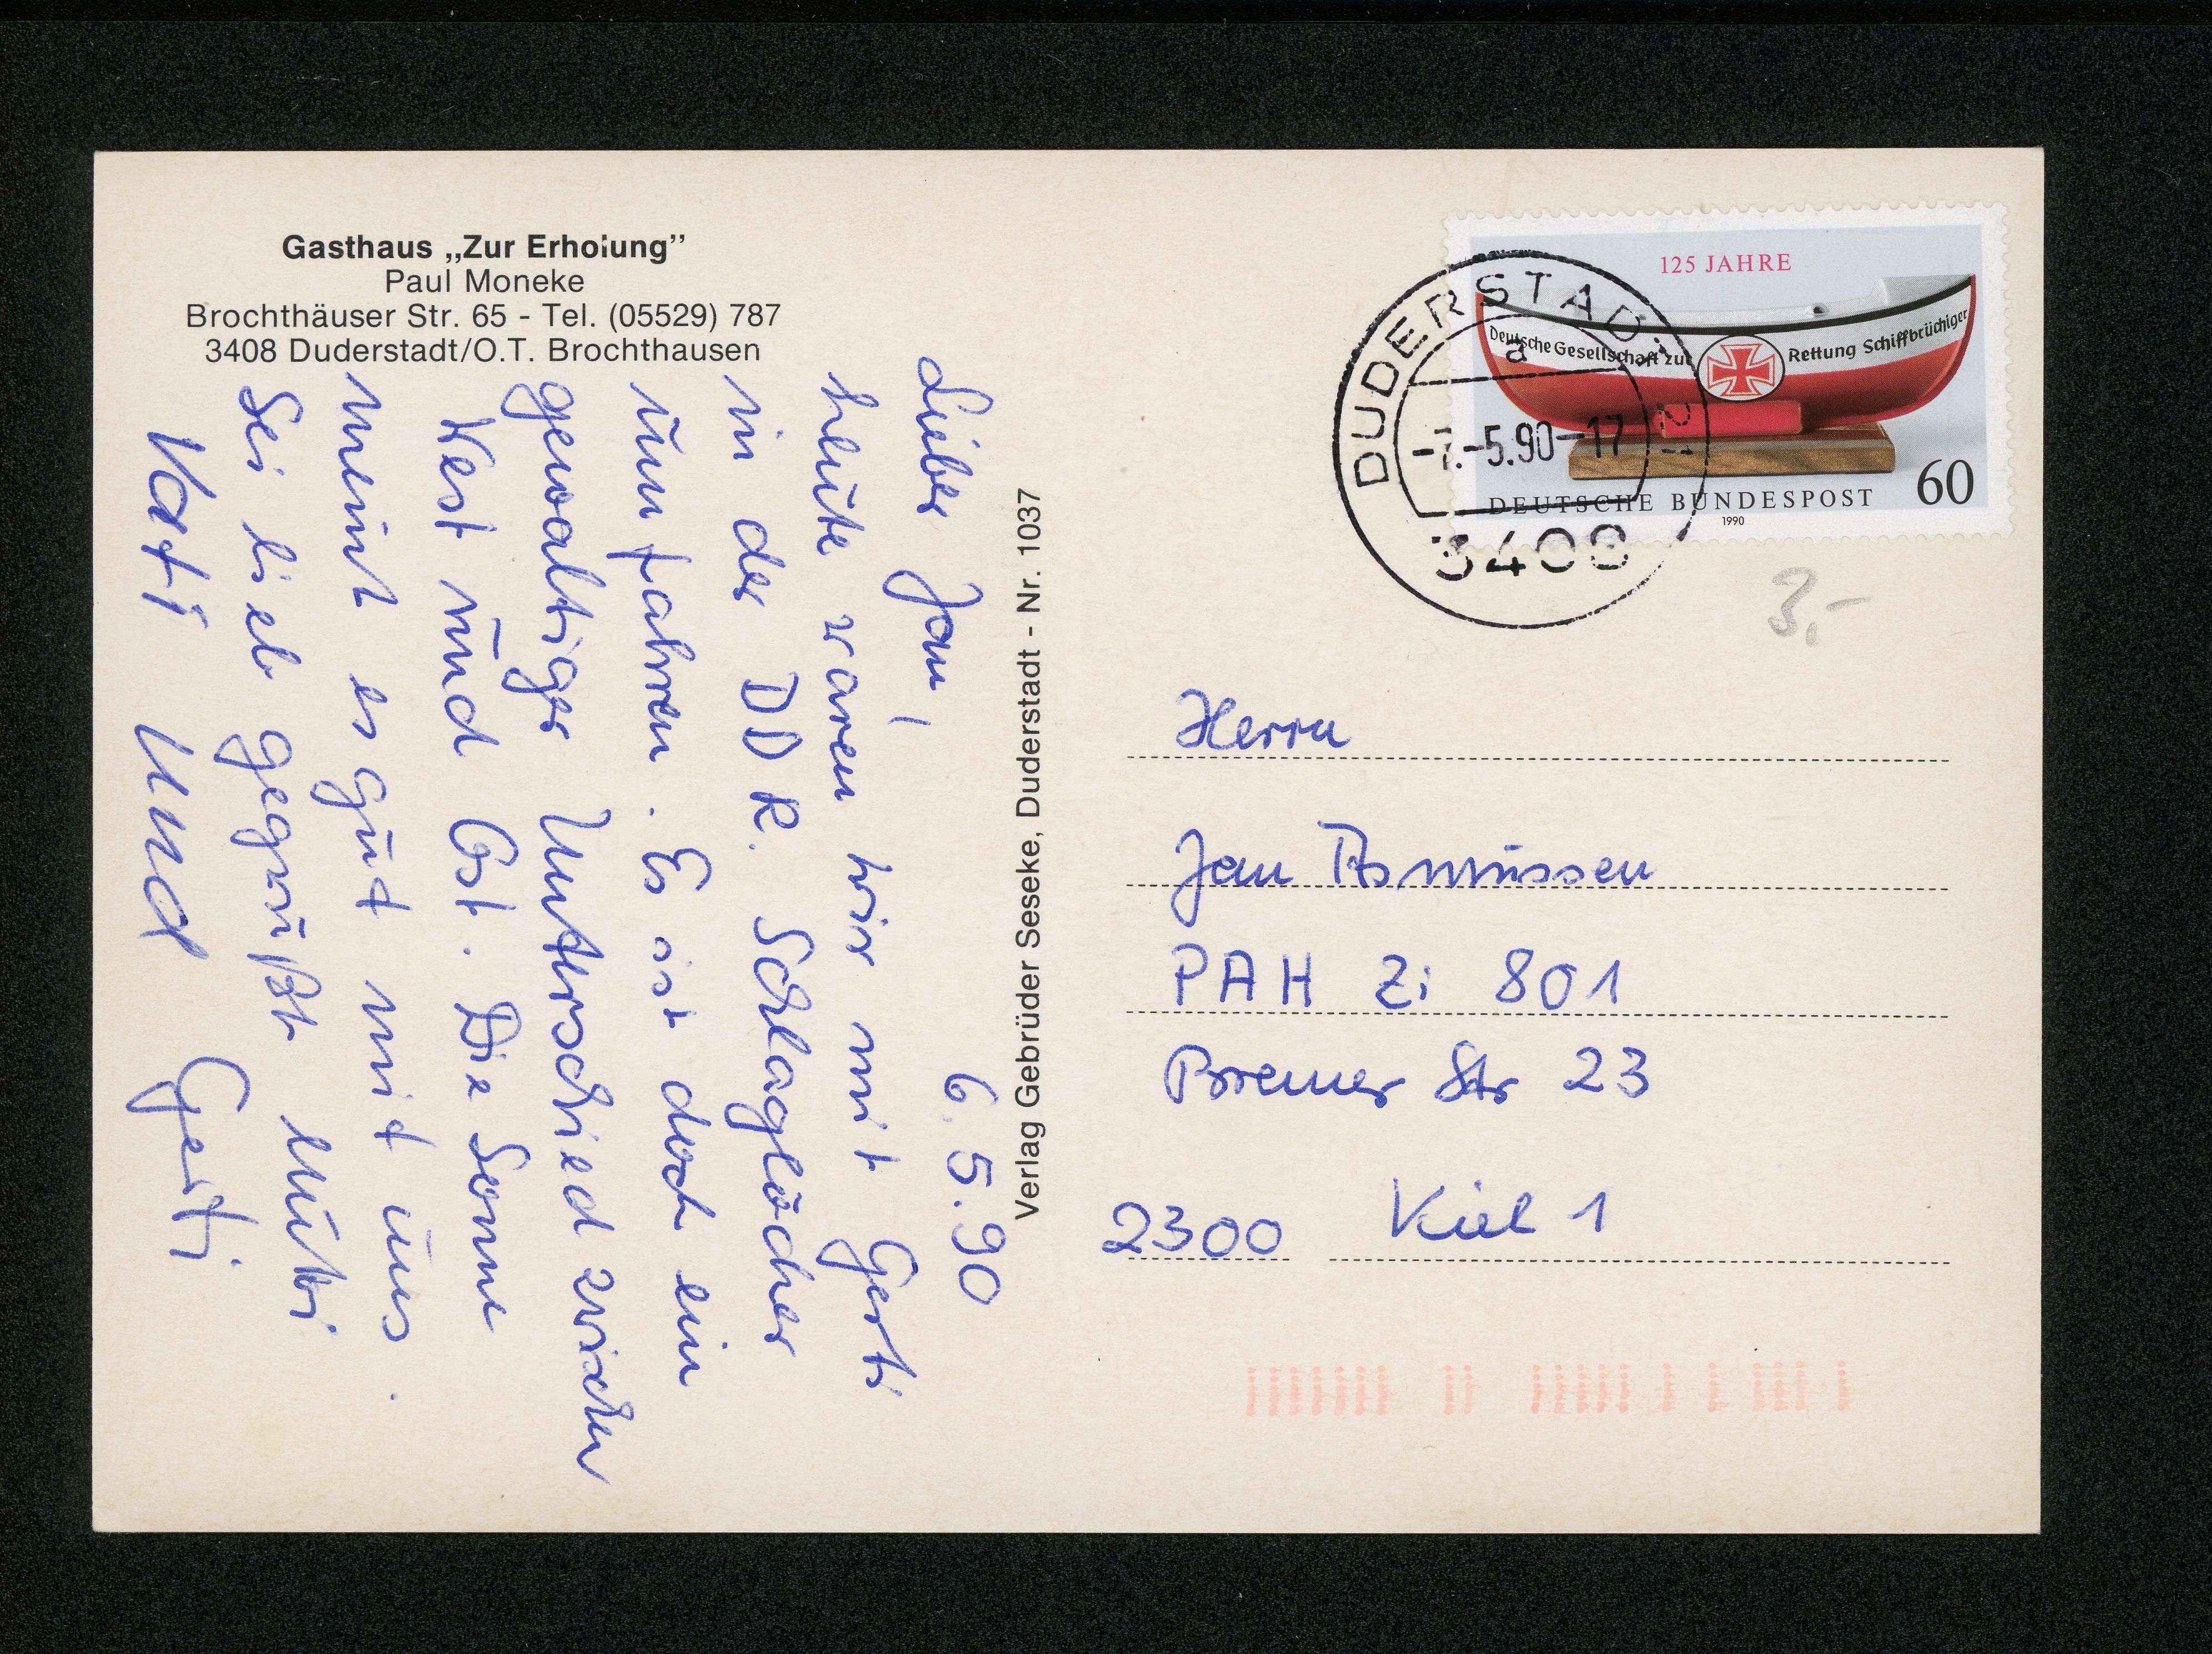 Gasthaus „Zur Erholung”
Paul Moneke
Brochthäuser Str. 65 - Tel. (05529) 787
3408 Duderstadt/O.T. Brochthausen
6.5.90
Lieber Jan,
heute waren wir mit Gerti
in der DDR. Schlaglöcher
umfahren. Es ist doch ein
gewaltiger Unterschied zwischen
West und Ost. Die Sonne
meint es gut mit uns.
Sei lieb gegrüßt Mutti
Vati und Gerti
Verlag Gebrüder Seseke, Duderstadt - Nr. 1037
125 JAHRE
Deutsche Gesellschaft zur Rettung Schiffbrüchiger
DEUTSCHE BUNDESPOST 60
1990
DUDERSTADT 1
a
-7.-5.90-17
3408
3,-
Herrn
Jan Asmussen
PAH Zi 801
Bremer Str 23
2300 Kiel 1